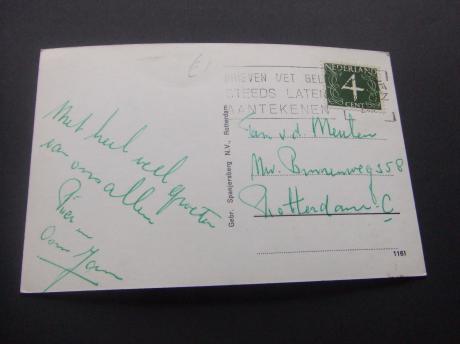 Met heel veel groeten
van ons allen
Oom
Gebr. Spanjersberg N.V., Rotterdam
BRIEVEN MET GELD
STEEDS LATEN
AANTEKENEN
NEDERLAND
4
CENT
Fam v.d. Meulen
Nw. Binnenweg 358
Rotterdam-C
1161